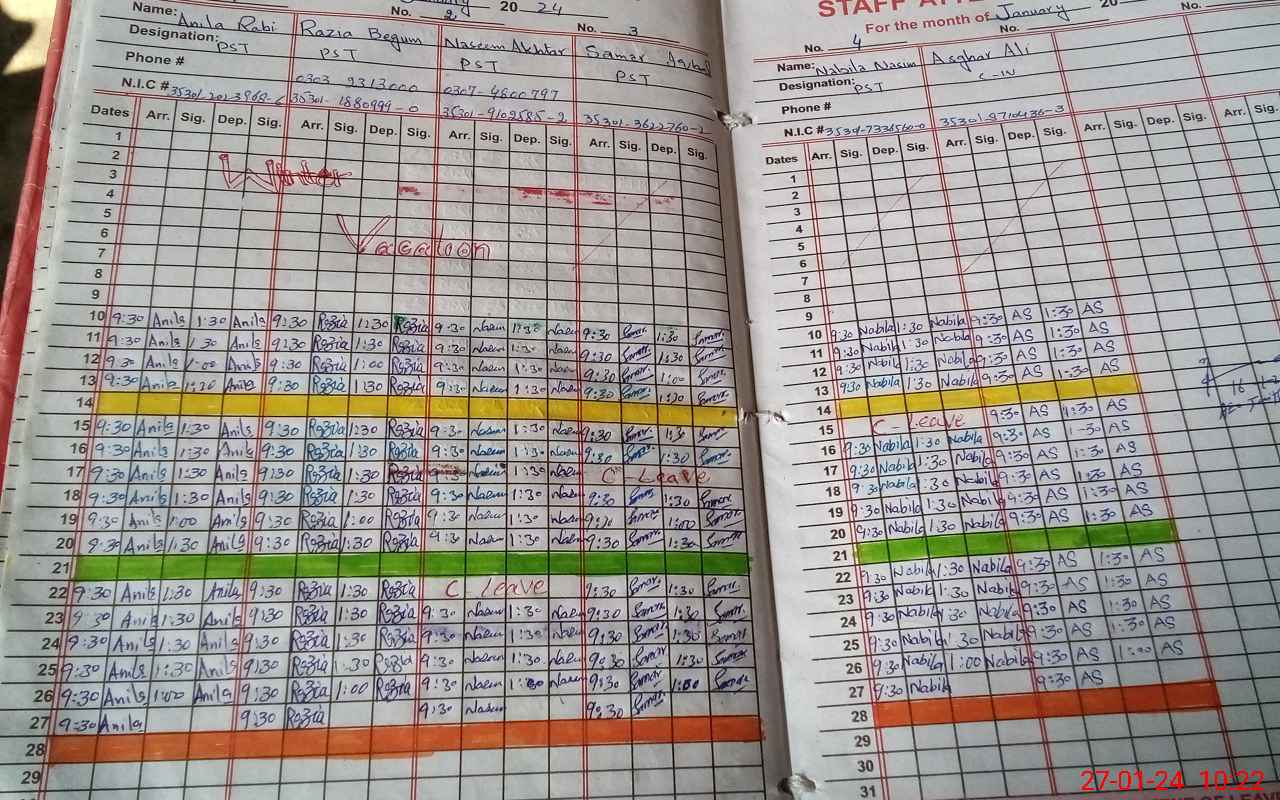 20 24
Name: Anila Rabi Razia Begum Naseem Akhtar Samar
No. 2 No. 3
Designation: PST PST PST PST
Phone # 0303 9313000 0307-4800797
N.I.C # 35301-1880999-0 35301-9109585-2 35301-3622760-2
Dates Arr. Sig. Dep. Sig. Arr. Sig. Dep. Sig. Arr. Sig. Dep. Sig. Arr. Sig. Dep. Sig.
1
2
3 Winter
4
5
6
7 Vacation
8
9
10 9:30 Anila 1:30 Anila 9:30 Razia 1:30 Razia 9:30 Naseem 1:30 Naseem 9:30 Samar 1:30 Samar
11 9:30 Anila 1:30 Anila 9:30 Razia 1:30 Razia 9:30 Naseem 1:30 Naseem 9:30 Samar 1:30 Samar
12 9:30 Anila 1:00 Anila 9:30 Razia 1:00 Razia 9:30 Naseem 1:30 Naseem 9:30 Samar 1:00 Samar
13 9:30 Anila 1:30 Anila 9:30 Razia 1:30 Razia 9:30 Naseem 1:30 Naseem 9:30 Samar 1:30 Samar
14
15 9:30 Anila 1:30 Anila 9:30 Razia 1:30 Razia 9:30 Naseem 1:30 Naseem 9:30 Samar 1:30 Samar
16 9:30 Anila 1:30 Anila 9:30 Razia 1:30 Razia 9:30 Naseem 1:30 Naseem 9:30 Samar 1:30 Samar
17 9:30 Anila 1:30 Anila 9:30 Razia 1:30 Razia 9:30 Naseem 1:30 Naseem C-Leave
18 9:30 Anila 1:30 Anila 9:30 Razia 1:30 Razia 9:30 Naseem 1:30 Naseem 9:30 Samar 1:30 Samar
19 9:30 Anila 1:00 Anila 9:30 Razia 1:00 Razia 9:30 Naseem 1:30 Naseem 9:30 Samar 1:00 Samar
20 9:30 Anila 1:30 Anila 9:30 Razia 1:30 Razia 9:30 Naseem 1:30 Naseem 9:30 Samar 1:30 Samar
21
22 9:30 Anila 1:30 Anila 9:30 Razia 1:30 Razia C-Leave 9:30 Samar 1:30 Samar
23 9:30 Anila 1:30 Anila 9:30 Razia 1:30 Razia 9:30 Naseem 1:30 Naseem 9:30 Samar 1:30 Samar
24 9:30 Anila 1:30 Anila 9:30 Razia 1:30 Razia 9:30 Naseem 1:30 Naseem 9:30 Samar 1:30 Samar
25 9:30 Anila 1:30 Anila 9:30 Razia 1:30 Razia 9:30 Naseem 1:30 Naseem 9:30 Samar 1:30 Samar
26 9:30 Anila 1:00 Anila 9:30 Razia 1:00 Razia 9:30 Naseem 1:00 Naseem 9:30 Samar 1:00 Samar
27 9:30 Anila 9:30 Razia 9:30 Naseem 9:30 Samar
28
29
STAFF
For the month of January 20
No. 4 No. No.
Name: Nabila Nasim Asghar Ali
Designation: PST C-IV
Phone #
N.I.C # 35301-9710436-3
Dates Arr. Sig. Dep. Sig. Arr. Sig. Dep. Sig. Arr. Sig. Dep. Sig. Arr. Sig.
1
2
3
4
5
6
7
8
9
10 9:30 Nabila 1:30 Nabila 9:30 AS 1:30 AS
11 9:30 Nabila 1:30 Nabila 9:30 AS 1:30 AS
12 9:30 Nabila 1:30 Nabila 9:30 AS 1:30 AS
13 9:30 Nabila 1:30 Nabila 9:30 AS 1:30 AS
14
15 C-Leave 9:30 AS 1:30 AS
16 9:30 Nabila 1:30 Nabila 9:30 AS 1:30 AS
17 9:30 Nabila 1:30 Nabila 9:30 AS 1:30 AS
18 9:30 Nabila 1:30 Nabila 9:30 AS 1:30 AS
19 9:30 Nabila 1:30 Nabila 9:30 AS 1:30 AS
20 9:30 Nabila 1:30 Nabila 9:30 AS 1:30 AS
21
22 9:30 Nabila 1:30 Nabila 9:30 AS 1:30 AS
23 9:30 Nabila 1:30 Nabila 9:30 AS 1:30 AS
24 9:30 Nabila 1:30 Nabila 9:30 AS 1:30 AS
25 9:30 Nabila 1:30 Nabila 9:30 AS 1:30 AS
26 9:30 Nabila 1:00 Nabila 9:30 AS 1:00 AS
27 9:30 Nabila 9:30 AS
28
29
30
31
27-01-24 10:22